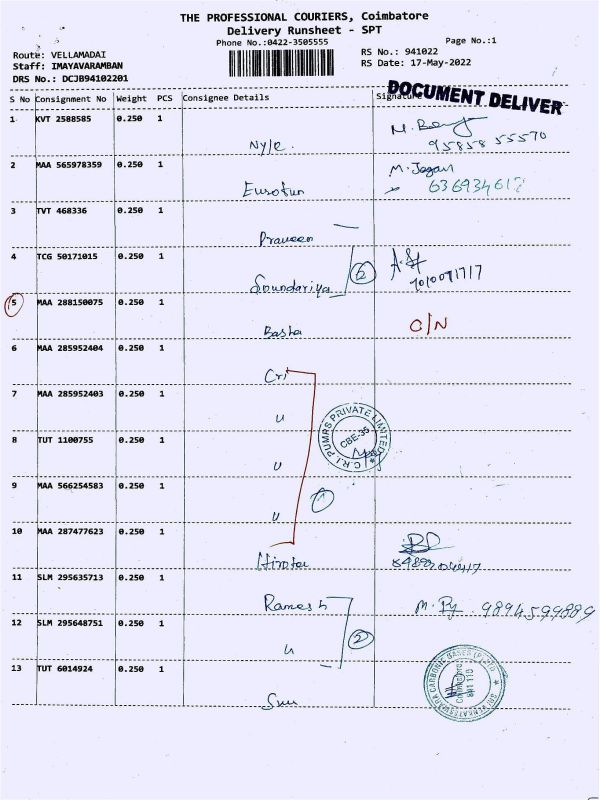 THE PROFESSIONAL COURIERS, Coimbatore
Delivery Runsheet - SPT
Phone No.:0422-3505555
Page No.:1
Route: VELLAMADAI
RS No.: 941022
Staff: IMAYAVARAMBAN
RS Date: 17-May-2022
DRS No.: DCJB94102201
DOCUMENT DELIVER
S No Consignment No Weight PCS Consignee Details Signature
1 KVT 2588585 0.250 1
95858 55570
2 MAA 565978359 0.250 1
M. Jagan
Eurofun
3 TVT 468336 0.250 1
Praveen
4 TCG 50171015 0.250 1
2
Soundariya
5 MAA 288150075 0.250 1
Basha C/N
6 MAA 285952404 0.250 1
Cri
7 MAA 285952403 0.250 1
u
C.R.I. PUMPS PRIVATE LIMITED
CBE-35
8 TUT 1100755 0.250 1
u
9 MAA 566254583 0.250 1
u
10 MAA 287477623 0.250 1
11 SLM 295635713 0.250 1
Ramesh 9894599889
12 SLM 295648751 0.250 1
u 2
13 TUT 6014924 0.250 1
SRI VENKATESWARA CARBONIC GASES (P) LTD
641 110